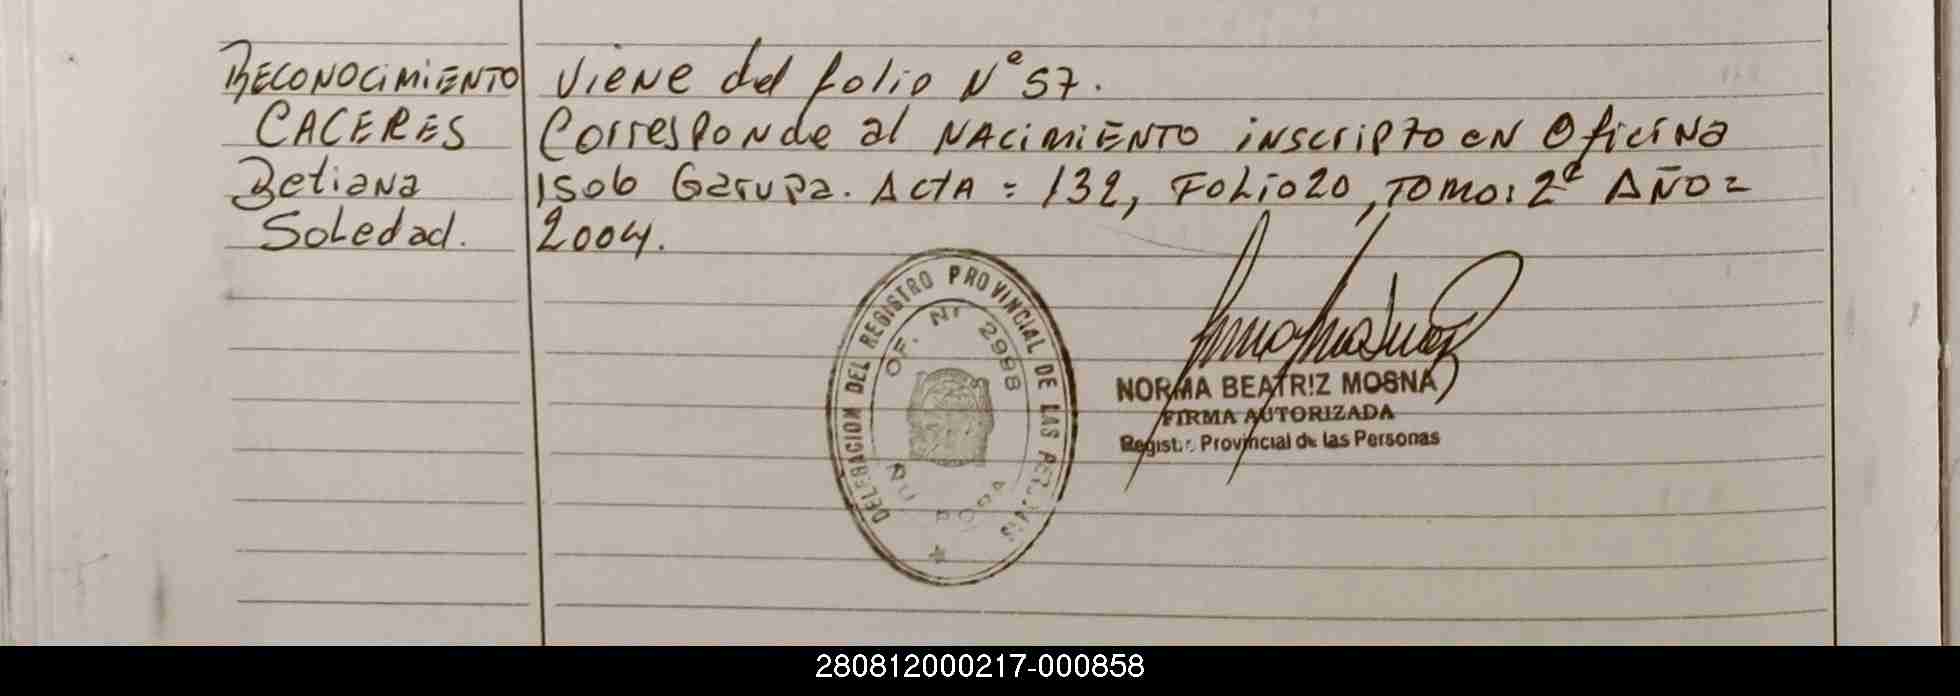 RECONOCIMIENTO
CACERES
Betiana
Soledad.
Viene del folio N° 57.
Corresponde al NACIMIENTO inscripto en Oficina
1506 Garupa. ACTA = 132, FOLIO 20, TOMO: 2° AÑO=
2004.
DELEGACION DEL REGISTRO PROVINCIAL DE LAS
OF. Nr 2998
NORMA BEATRIZ MOSNA
FIRMA AUTORIZADA
Registro Provincial de las Personas
280812000217-000858